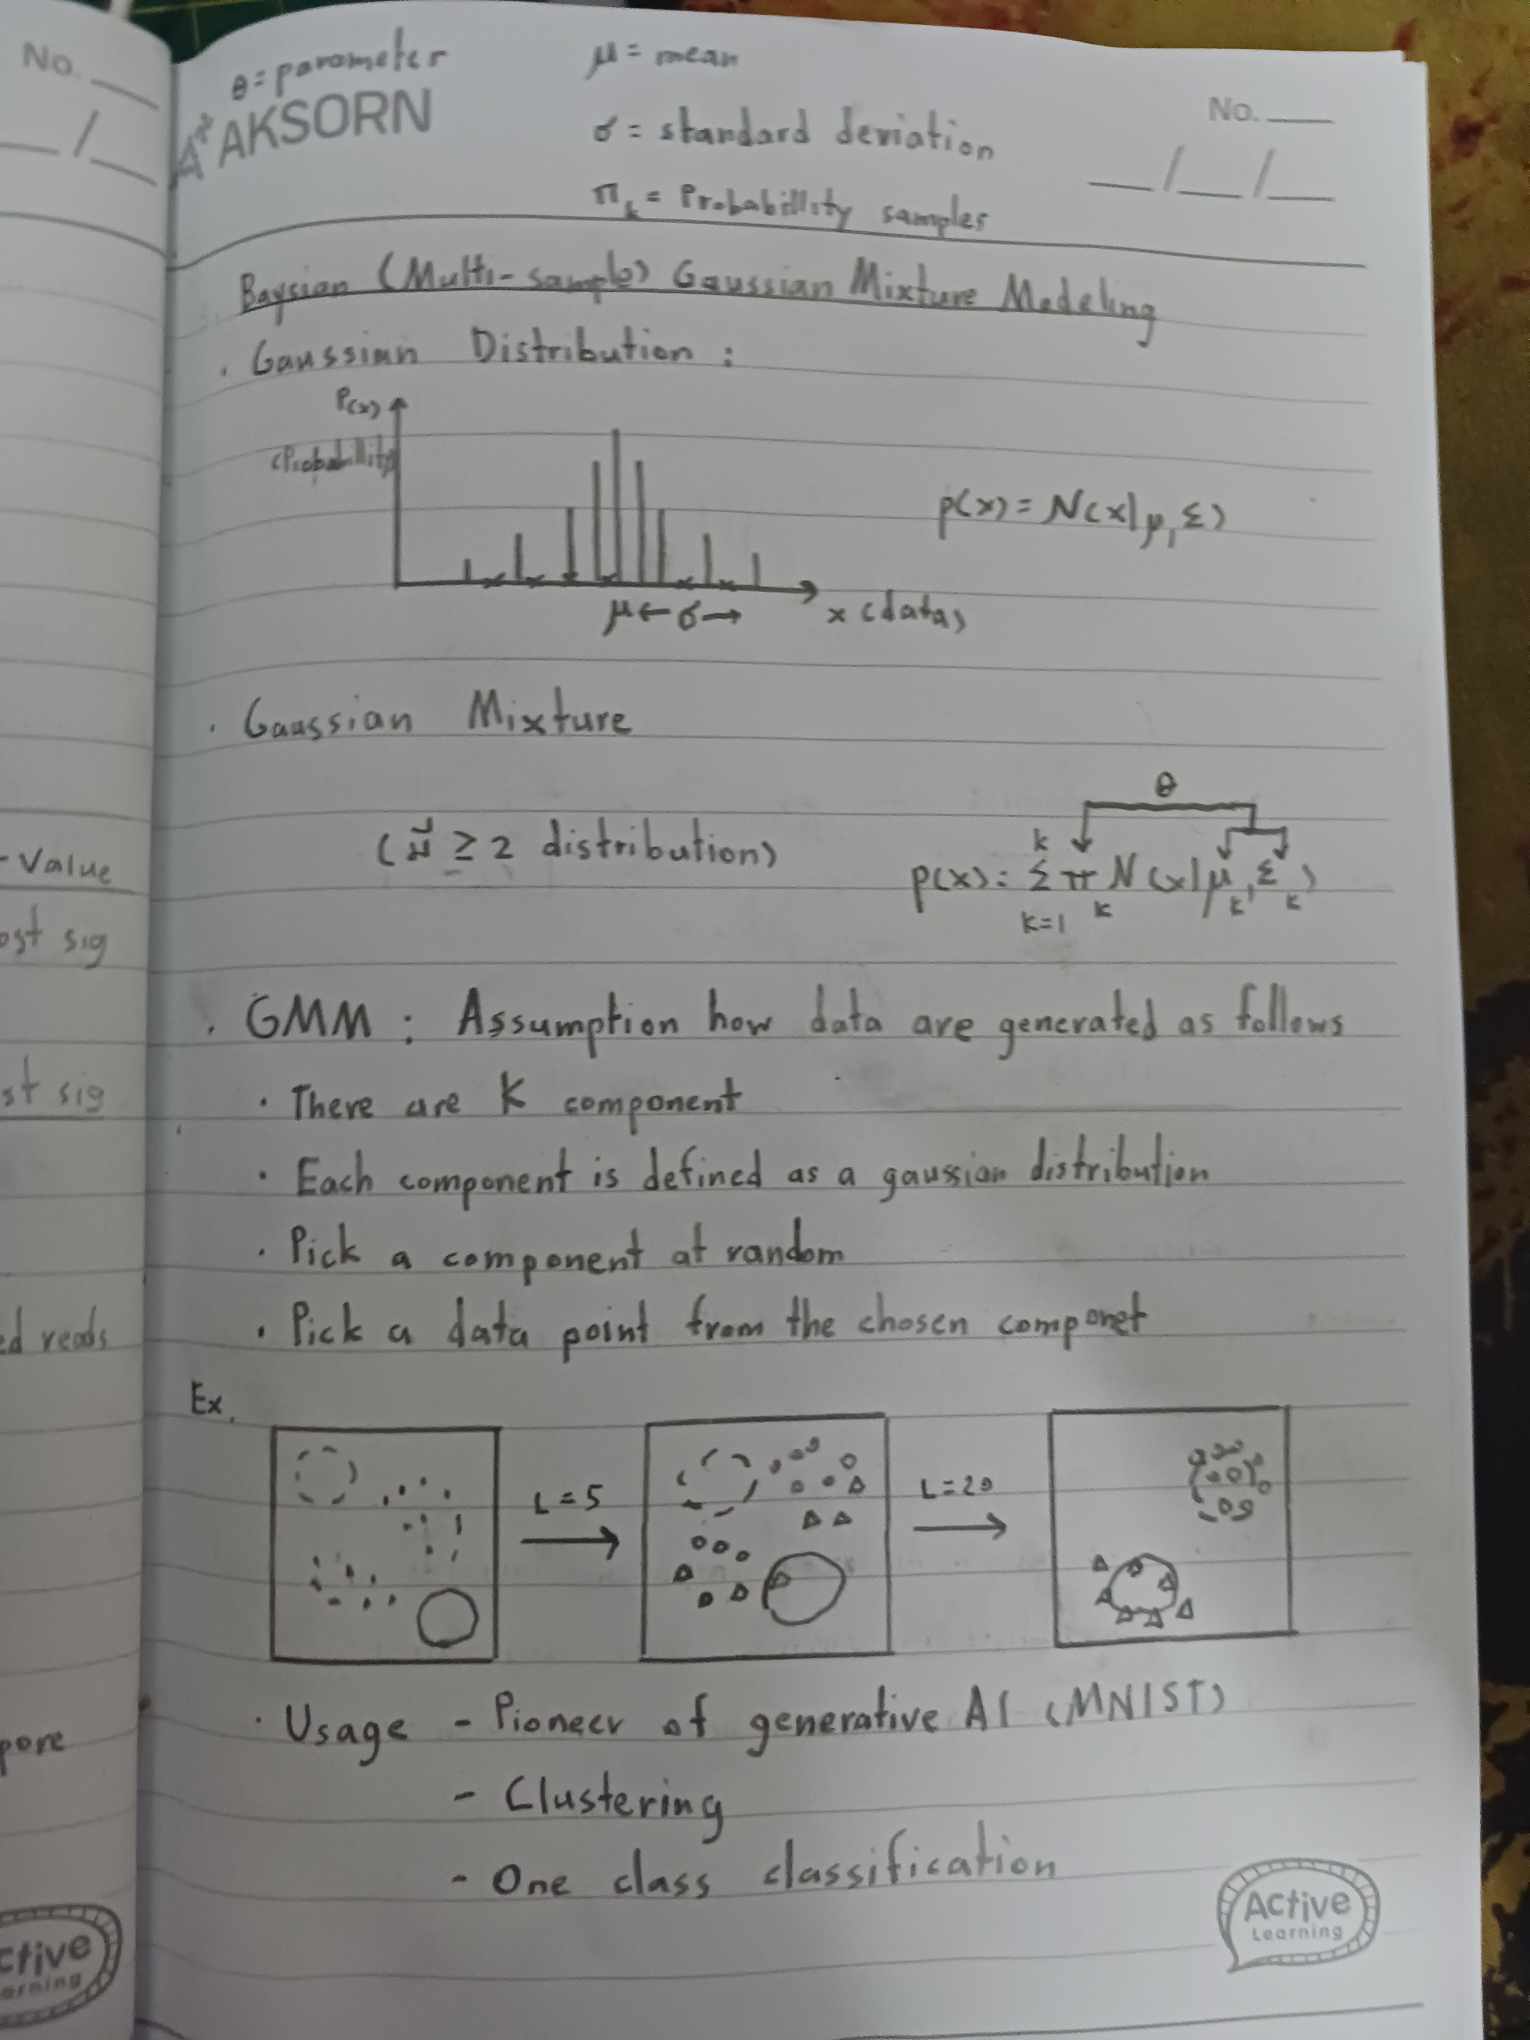 No.
θ = parameter
μ = mean
AKSORN
No.
σ = standard deviation
__/__/__
π_k = Probabillity samples
Baysian (Multi-sample) Gaussian Mixture Modeling
• Gaussian Distribution :
P(x)
(Probabillity)
p(x) = N(x|μ, Σ)
μ ← σ →
x (data)
• Gaussian Mixture
θ
(มี ≥ 2 distribution)
p(x) = Σ_{k=1}^{k} π_k N(x|μ_k, Σ_k)
- Value
ost sig
• GMM : Assumption how data are generated as follows
st sig
• There are K component
• Each component is defined as a gaussian distribution
• Pick a component at random
• Pick a data point from the chosen componet
ed reads
Ex.
L = 5
L = 20
• Usage - Pioneer of generative AI (MNIST)
pore
- Clustering
- One class classification
Active
Learning
ctive
arning